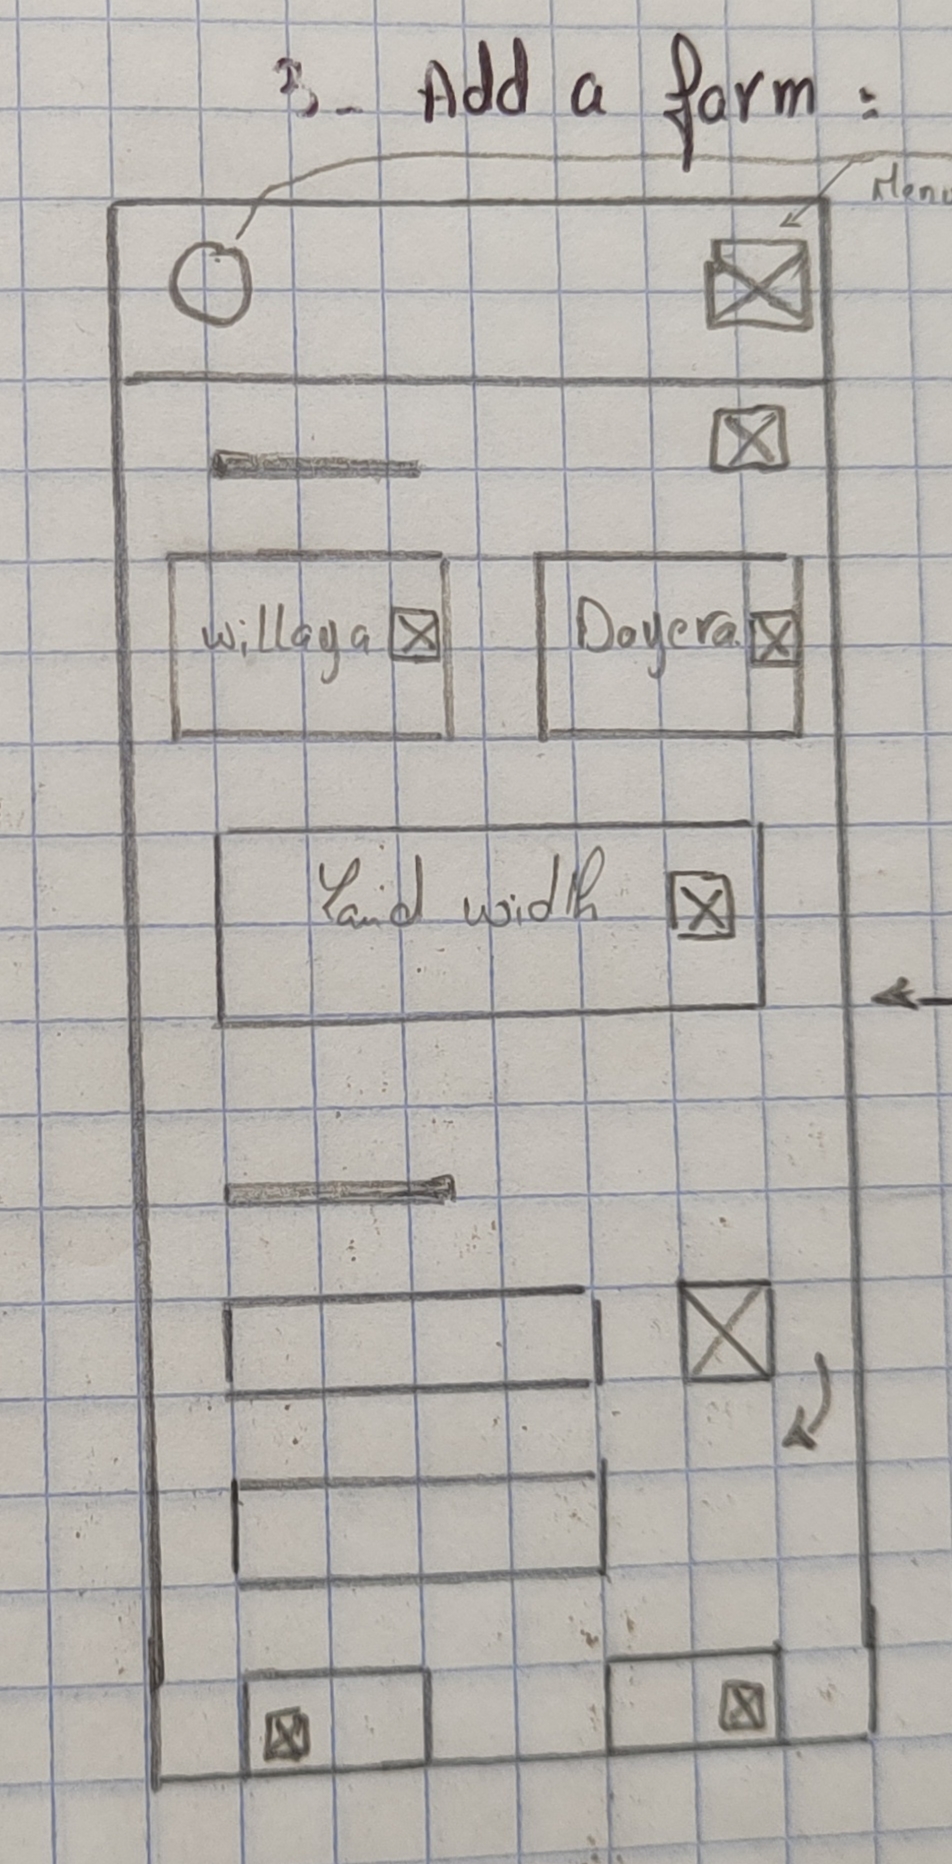 3- Add a farm :
Menu
willaya
Dayera
Land width